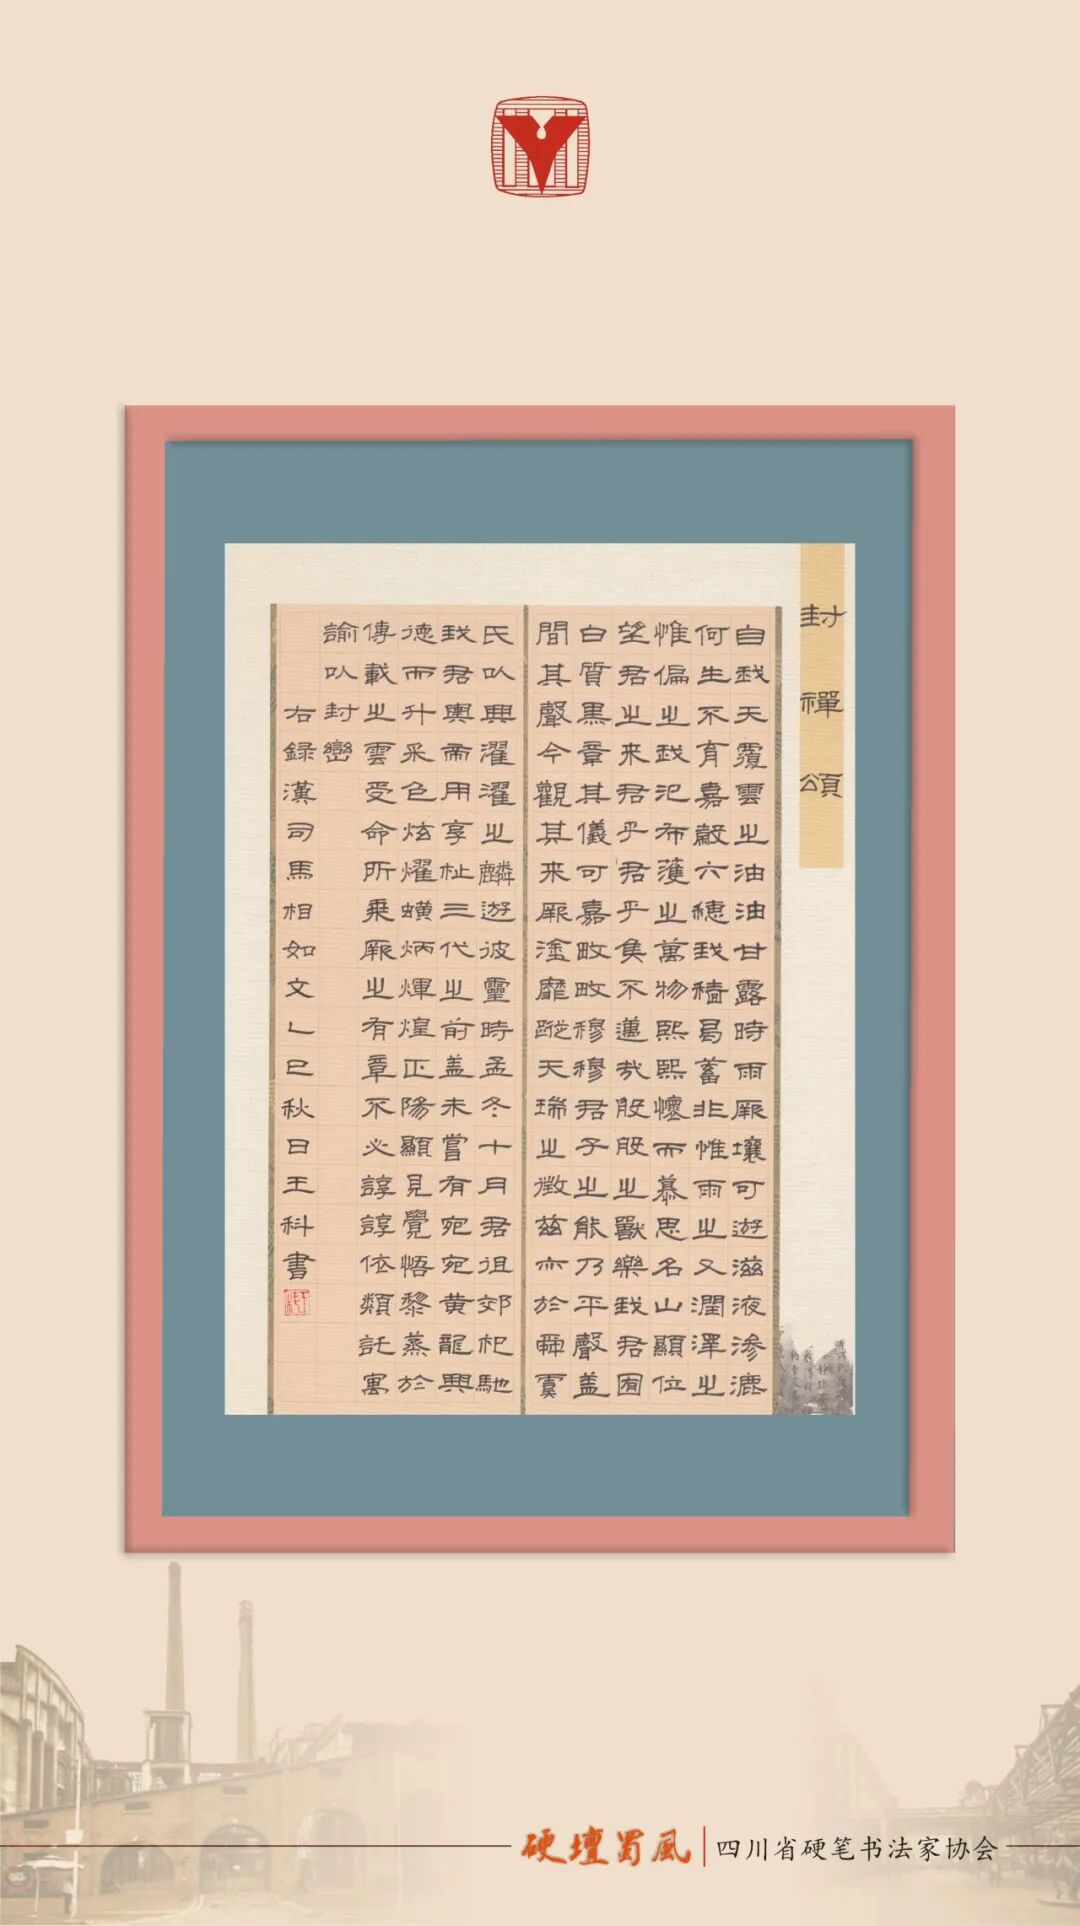 封禪頌
自我天覆雲之油油甘露時雨厥壤可遊滋液滲漉
何生不育嘉穀六穗我穡曷蓄非惟雨之又潤澤之
惟偏之我氾布濩之萬物熙熙懷而慕思名山顯位
望君之来君乎君乎矦不邁哉般般之獸樂我君囿
白質黑章其儀可嘉旼旼穆穆君子之能乃平聲盖
間其聲今觀其来厥塗靡蹤天瑞之徵兹亦於舜虞
氏以興濯濯之麟遊彼靈時孟冬十月君徂郊祀馳
我君輿帝用享祉三代之前盖未嘗有宛宛黄龍興
德而升采色炫燿熿炳煇煌正陽顯見覺悟黎蒸於
傳載之雲受命所乘厥之有章不必諄諄依類託寓
諭以封巒
右錄漢司馬相如文乙巳秋日王科書
硬壇蜀風
四川省硬笔书法家协会